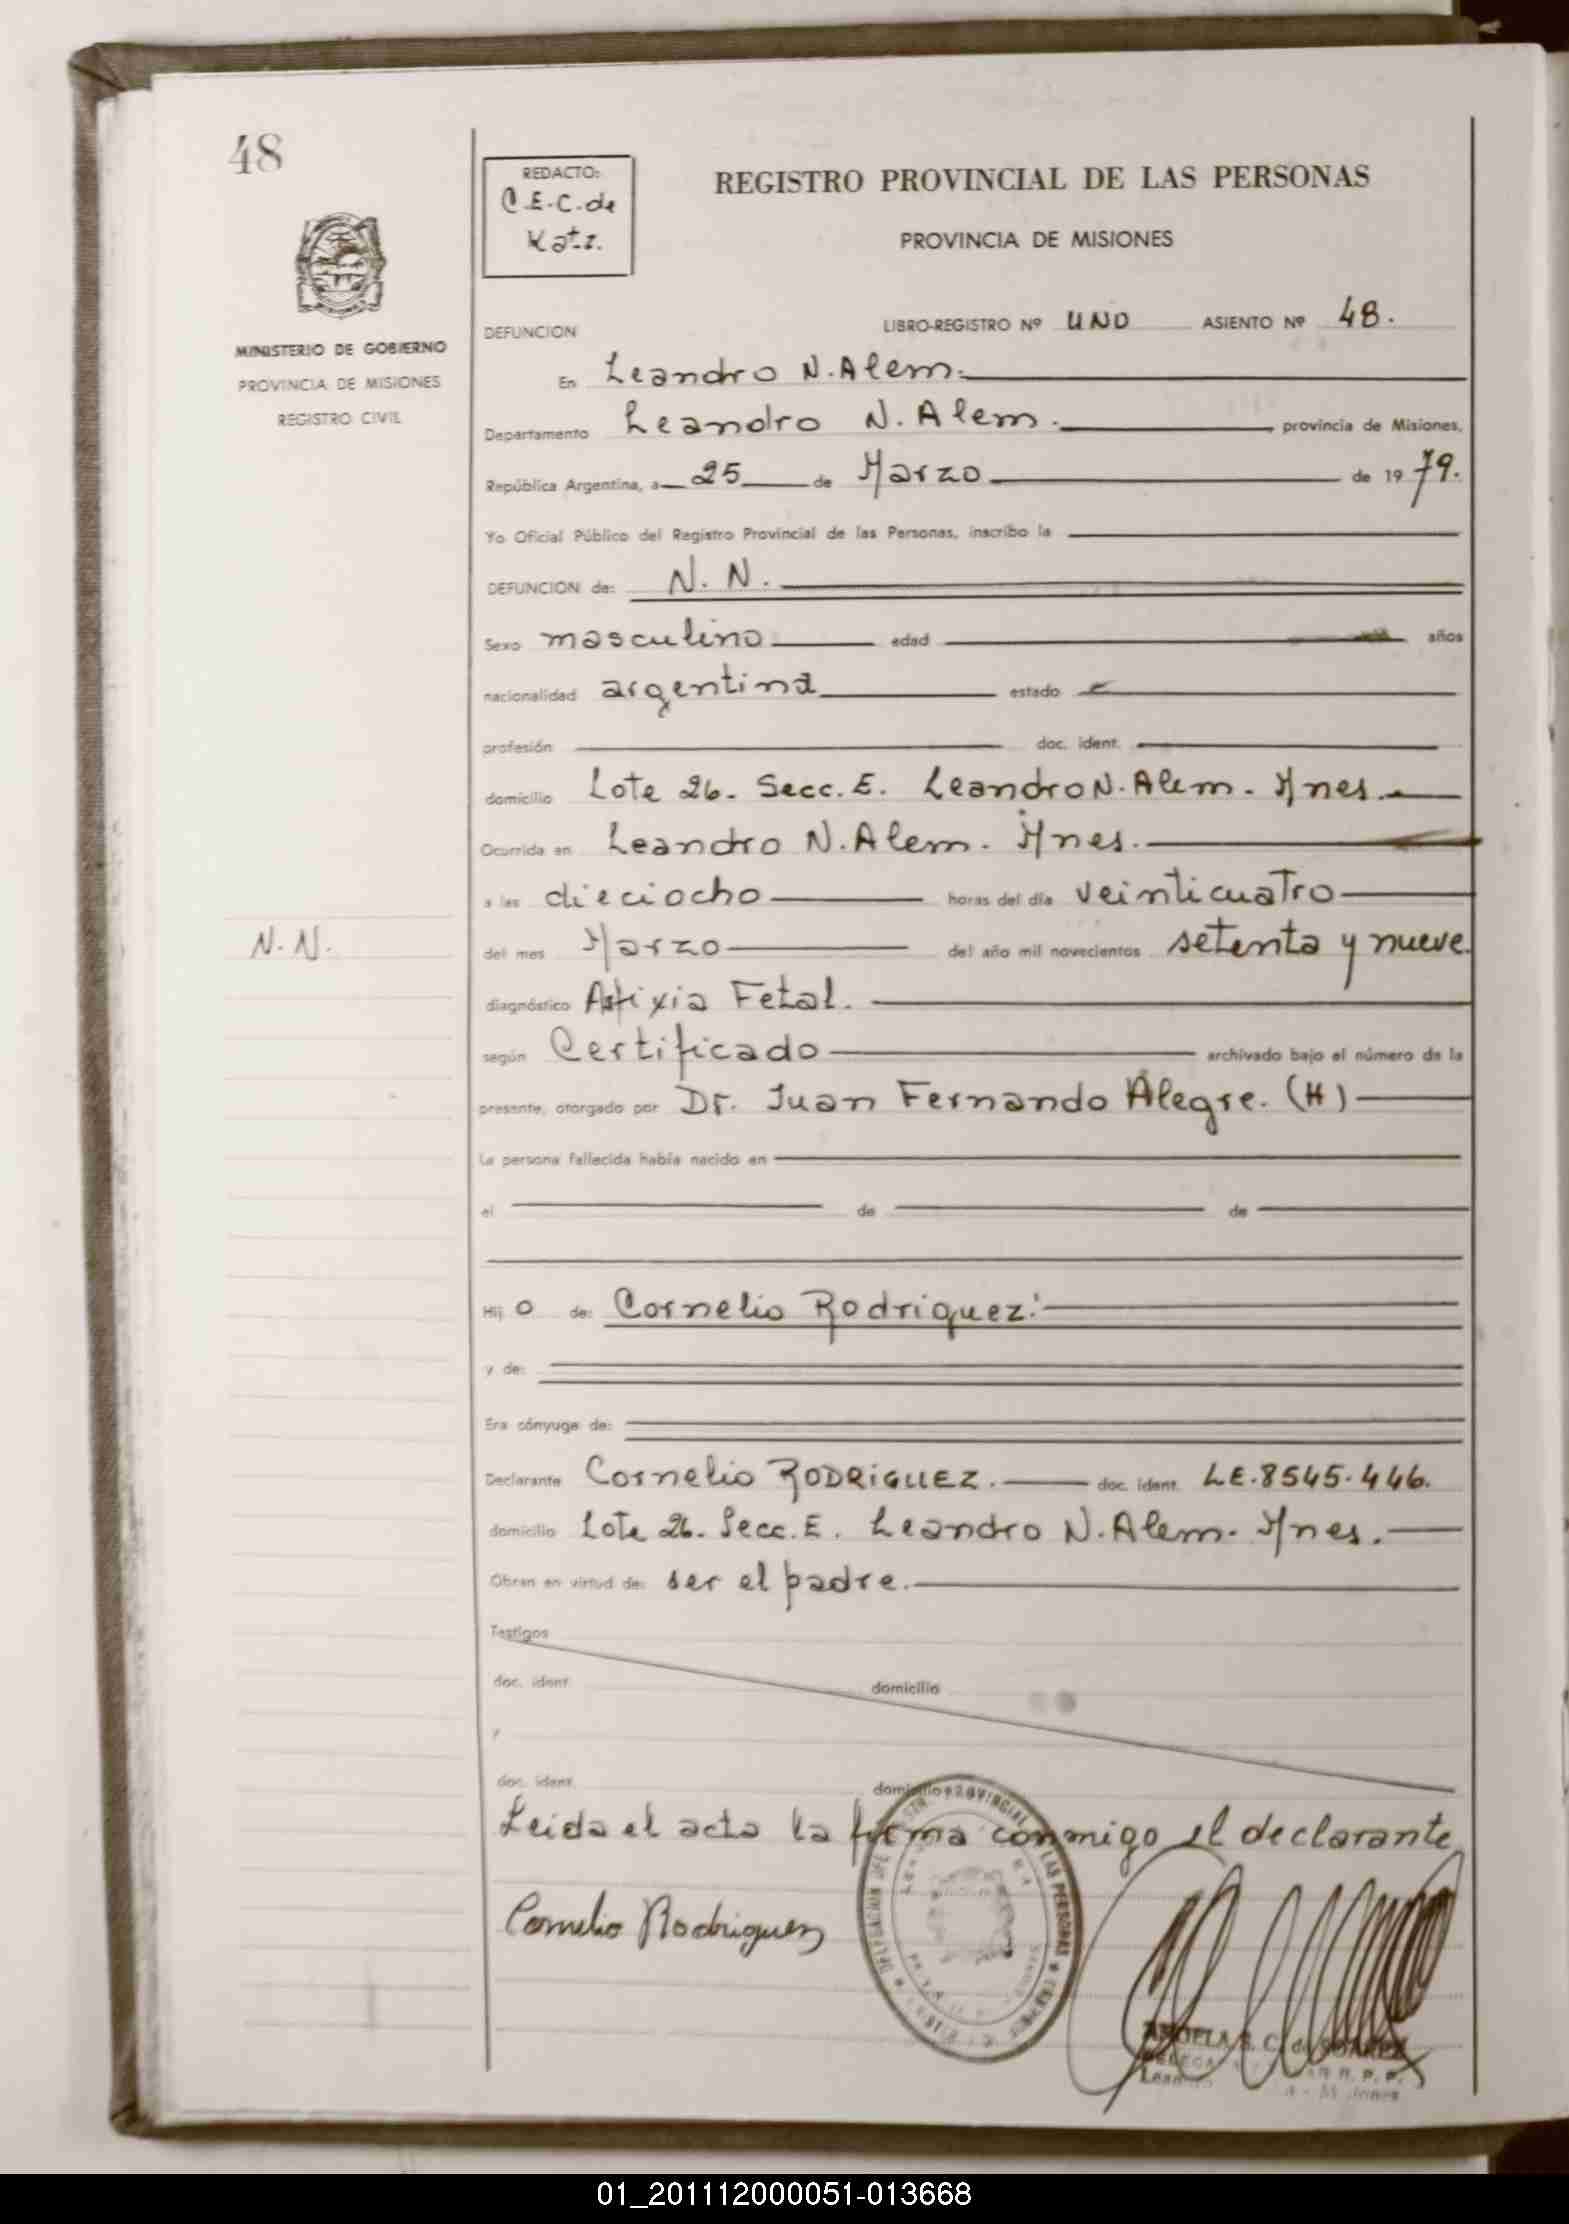 48
REDACTO:
C.E.C. de
Katz.
REGISTRO PROVINCIAL DE LAS PERSONAS
PROVINCIA DE MISIONES
MINISTERIO DE GOBIERNO
PROVINCIA DE MISIONES
REGISTRO CIVIL
DEFUNCION LIBRO-REGISTRO Nº UNO ASIENTO Nº 48.
En Leandro N. Alem.
Departamento Leandro N. Alem. provincia de Misiones,
República Argentina, a 25 de Marzo de 1979.
Yo Oficial Público del Registro Provincial de las Personas, inscribo la
DEFUNCION de: N. N.
Sexo masculino edad años
nacionalidad argentina estado
profesión doc. ident.
domicilio Lote 26. Secc. E. Leandro N. Alem. Mnes.
Ocurrida en Leandro N. Alem. Mnes.
a las dieciocho horas del día veinticuatro
N. N.
del mes Marzo del año mil novecientos setenta y nueve.
diagnóstico Asfixia Fetal.
según Certificado archivado bajo el número de la
presente, otorgado por Dr. Juan Fernando Alegre. (H)
La persona fallecida había nacido en
el de de
Hij o de: Cornelio Rodriguez.
y de:
Era cónyuge de:
Declarante Cornelio RODRIGUEZ. doc. ident. LE. 8545.446.
domicilio Lote 26. Secc. E. Leandro N. Alem. Mnes.
Obran en virtud de: ser el padre.
Testigos
doc. ident. domicilio
y
doc. ident. domicilio
Leida el acta la firma conmigo el declarante
Cornelio Rodriguez
ANGELA S. C. de SUAREZ
01_201112000051-013668